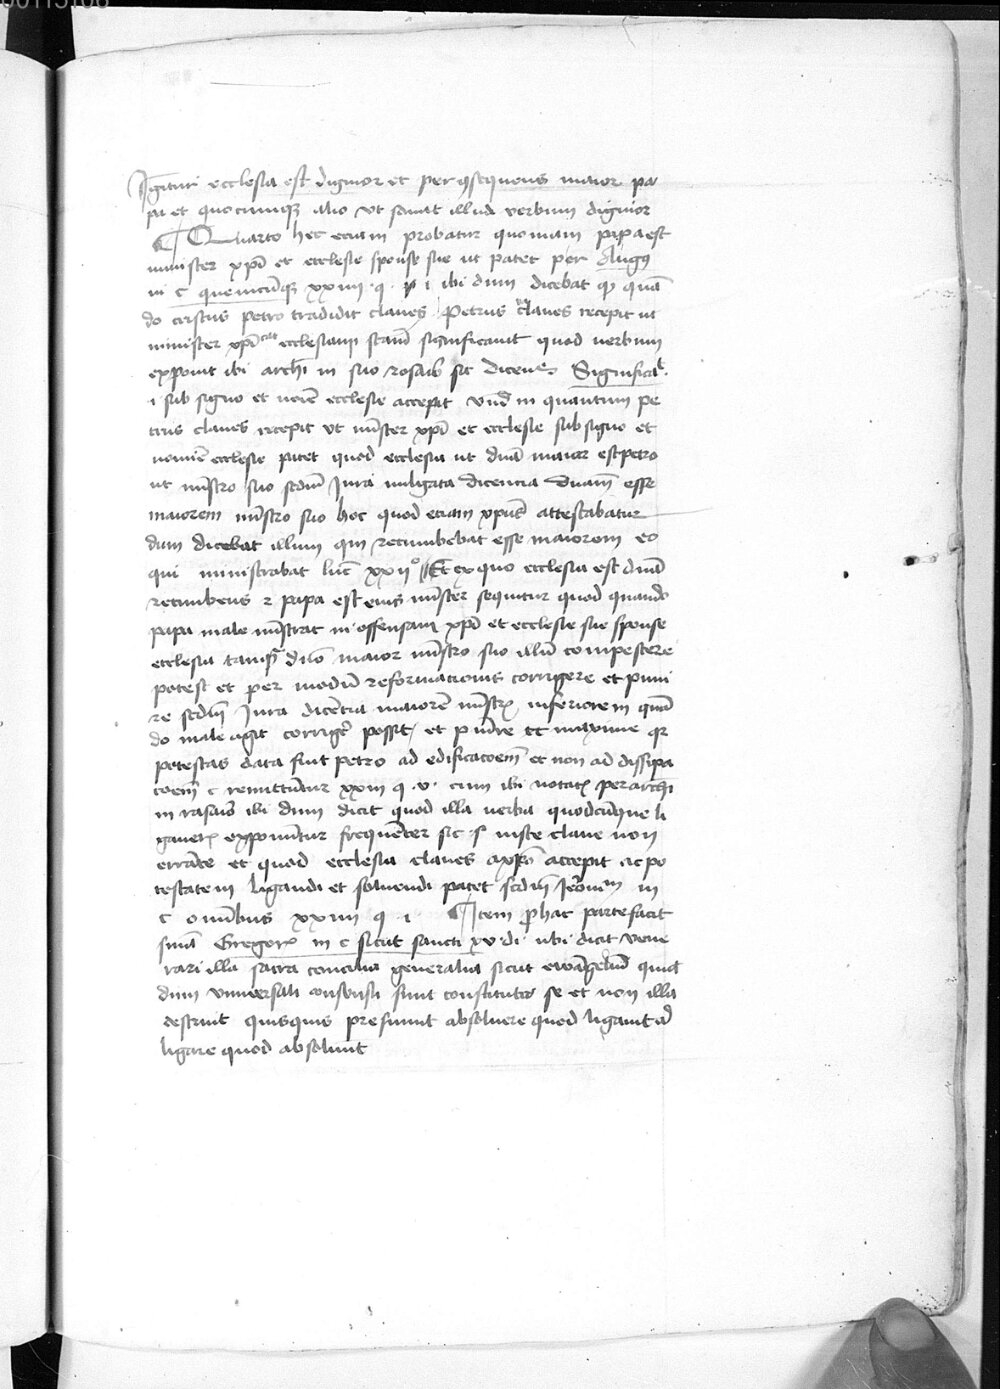 Igitur ecclesia est dignior et per consequens maior pa
pa et quocumque alio ut sonat illud verbum dignior
¶ Quarto hec eciam probatur quoniam papa est
minister xpi et ecclesie sponse sue ut patet per Augus
in c quemcumque xxiiii q i ibi dum dicebat quod quan
do cristus petro tradidit claves Petrus claves recepit ut
minister xpi ecclesiam sanctam significavit quod verbum
exponit ibi archi in suo rosario sic dicens Significavit
i sub signo et nomine ecclesie accepit Unde in quantum pe
trus claves recepit ut minister xpi et ecclesie sub signo et
nomine ecclesie patet quod ecclesia ut domina maior est petro
ut ministro suo secundum Jura vulgata dicencia dominam esse
maiorem ministro suo hoc quod eciam xpus attestabatur
dum dicebat illum qui recumbebat esse maiorem eo
qui ministrabat luc xxii° Et ex quo ecclesia est domina
recumbens et papa est eius minister sequitur quod quando
papa male ministrat in offensam xpi et ecclesie sue sponse
ecclesia tamquam domina maior ministro suo illum compescere
potest et per modum reformationis corrigere et puni
re secundum Jura dicentia maiorem ministrum inferiorem quan
do male agit corrigere possit et punire et maxime quia
potestas data fuit petro ad edificacoem et non ad dissipa
coem c remittuntur xxiii q v cum ibi notatis per archi
in rosario ibi dum dicit quod illa verba quodcunque li
gaveris exponuntur frequenter sic s iuste clave non
errante et quod ecclesia claves a xpo accepit ac po
testatem ligandi et solvendi patet secundum Jeronimum in
c omnibus xxiiii q i ¶ Item pro hac parte facit
summa Gregorii in c sicut sancti xv di ubi dicit vene
rari illa sacra concilia generalia sicut ewangelium quia
dum universali consensu sunt constituta se et non illa
destruit quisquis presumit absolvere quod ligant et
ligare quod absolvunt